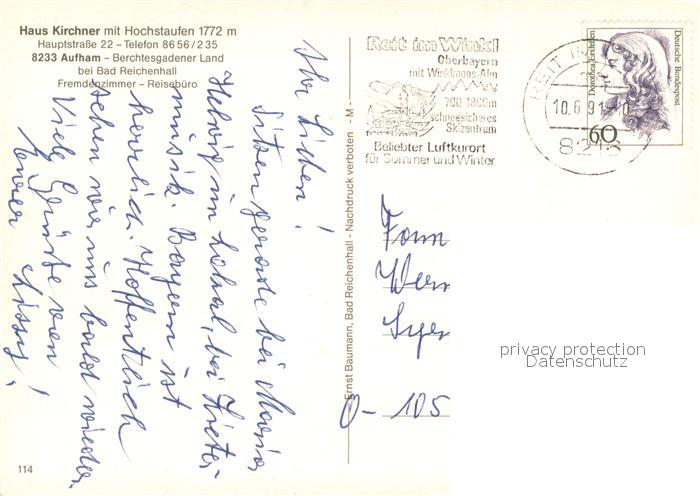 Haus Kirchner mit Hochstaufen 1772 m
Hauptstraße 22 – Telefon 8656/235
8233 Aufham – Berchtesgadener Land
bei Bad Reichenhall
Fremdenzimmer – Reisebüro
Ihr Lieben!
Sitzen gerade bei Maria
Helwig im Lokal, bei Zieter-
musik. Bayern ist
herrlich. Hoffentlich
sehen wir uns bald wieder.
Viele Grüße von
Eurer Sissy!
114
Ernst Baumann, Bad Reichenhall - Nachdruck verboten - M -
Reit im Winkl
Oberbayern
mit Winklmoos-Alm
700-1800m
schneesicheres
Skizentrum
Beliebter Luftkurort
für Sommer und Winter
REIT I
10.6.91
8216
Deutsche Bundespost
60
Fam
Wer
O- 105
privacy protection
Datenschutz